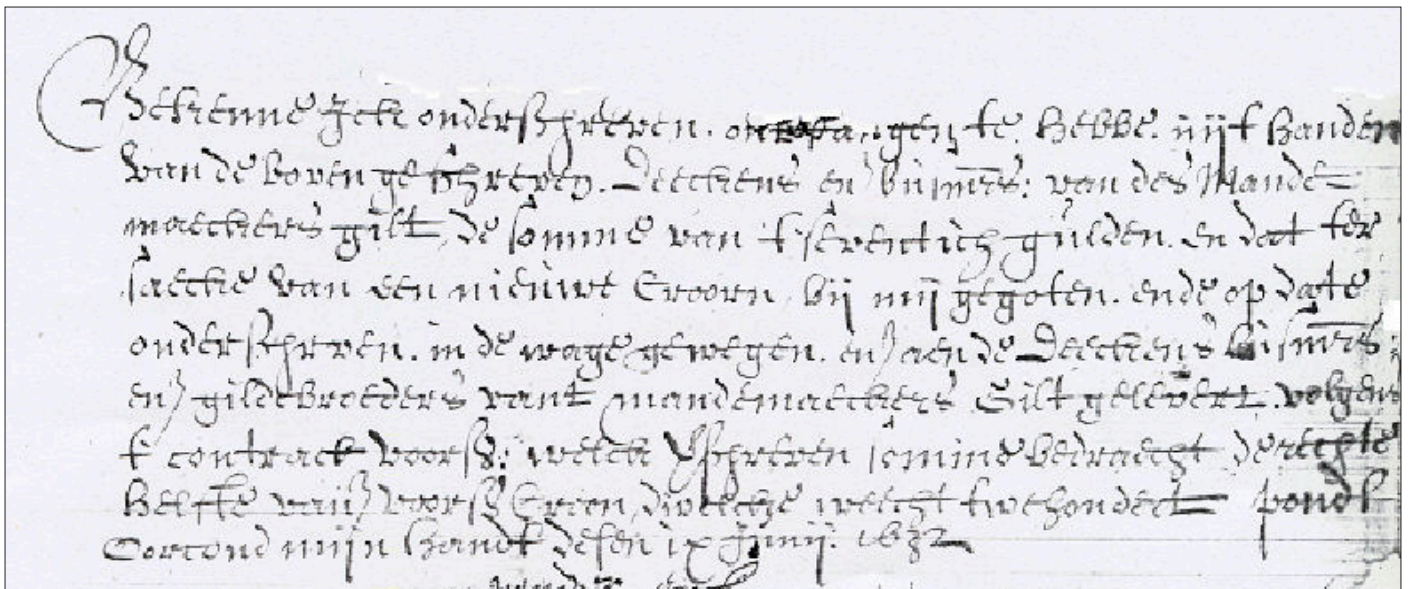 Bekenne Jck onderschreven. ontvangen te. Hebbe. uijt handen
van de boven geschreven. Deeckens en busmrs: van des Mande
maeckers gilt de somme van t'seventich gulden. en dat ter
saecke van een nieuwe Croon, bij mij gegoten. ende op date
onderschreven. in de wage gewegen. en aen de Deeckens busmrs:
en gildebroeders vant mandemaeckers Gilt gelevert. volgens
t contrack voors: welck schreven somme bedraecht de rechte
helfte van voors Croon dwelcke weecht twehondert pondt
Oorcond mijn handt desen ix Junij: 1632